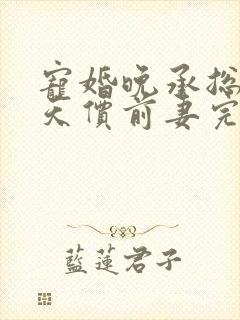 寵婚晚承總
天價前妻完
藍蓮君子